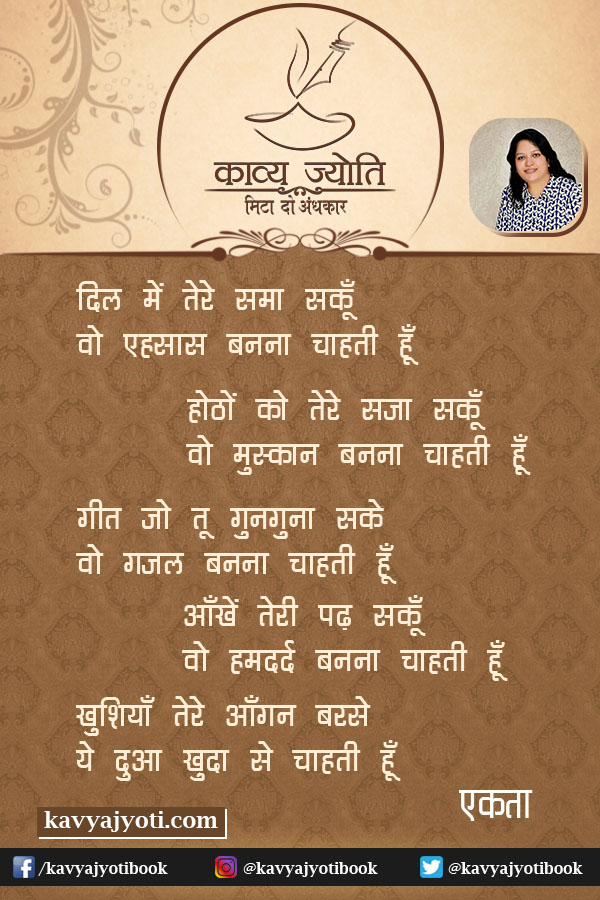 काव्य ज्योति
मिटा दो अंधकार
दिल में तेरे समा सकूँ
वो एहसास बनना चाहती हूँ
होठों को तेरे सजा सकूँ
वो मुस्कान बनना चाहती हूँ
गीत जो तू गुनगुना सके
वो गजल बनना चाहती हूँ
आँखें तेरी पढ़ सकूँ
वो हमदर्द बनना चाहती हूँ
खुशियाँ तेरे आँगन बरसे
ये दुआ खुदा से चाहती हूँ
एकता
kavyajyoti.com
/kavyajyotibook @kavyajyotibook @kavyajyotibook